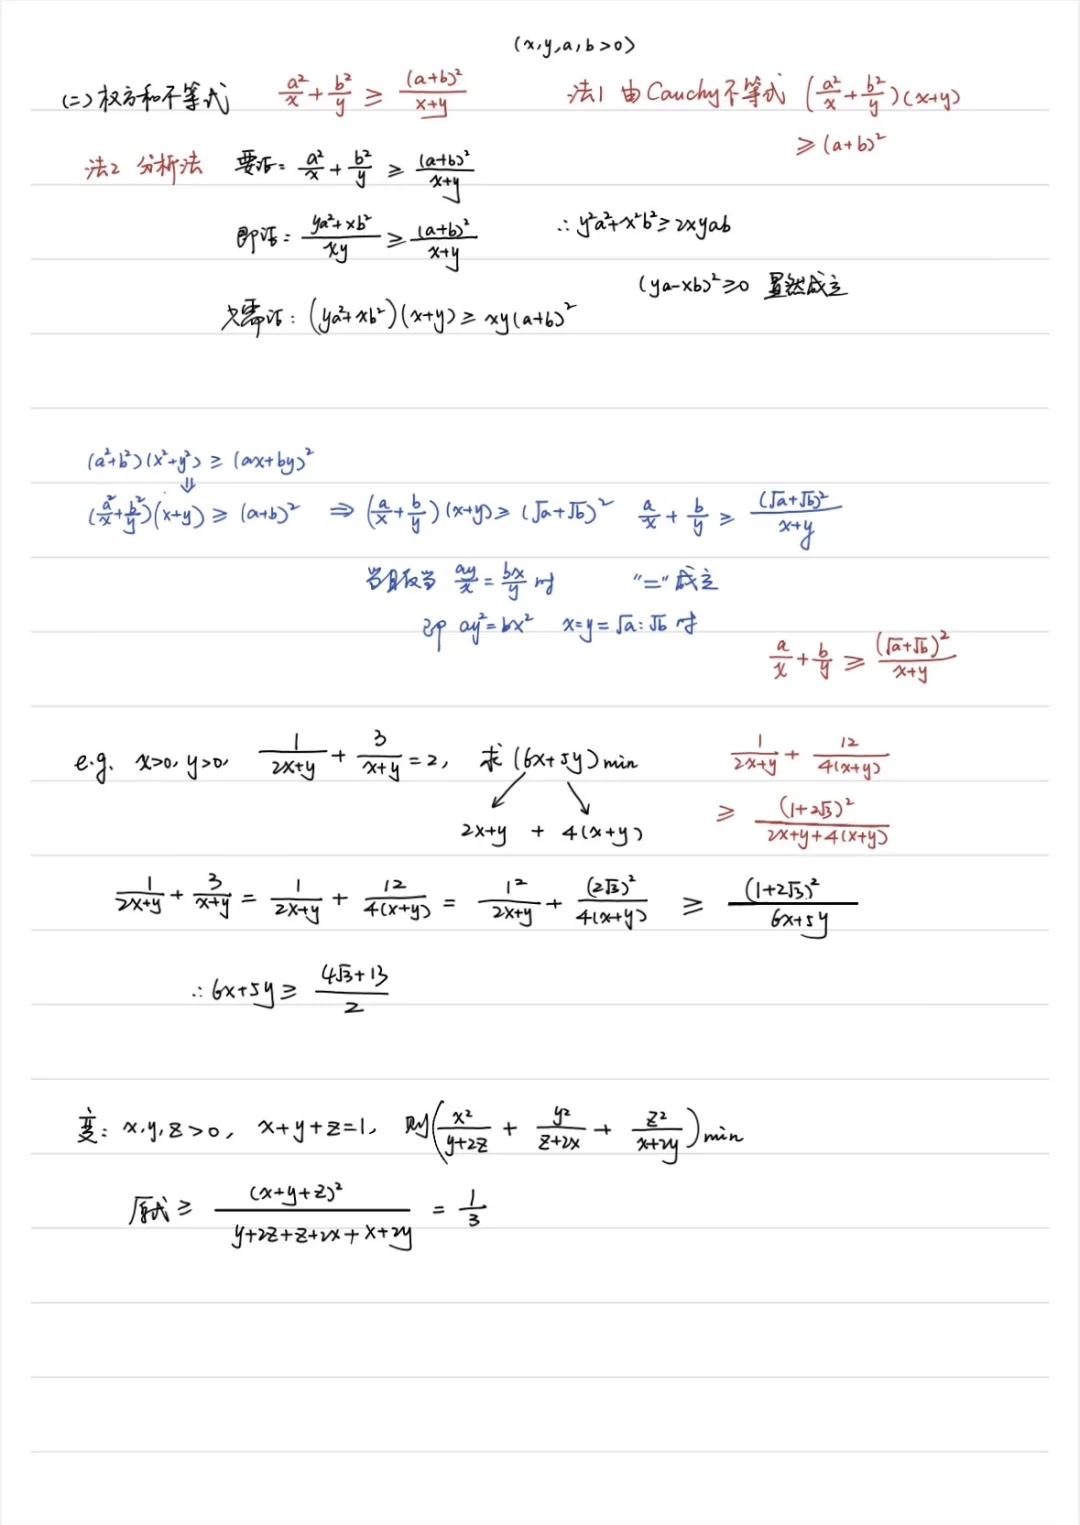 (x,y,a,b>0)
(二)权方和不等式 a²/x + b²/y ≥ (a+b)²/(x+y) 法1 由Cauchy不等式 (a²/x + b²/y)(x+y)
≥(a+b)²
法2 分析法 要证: a²/x + b²/y ≥ (a+b)²/(x+y)
即证: (ya²+xb²)/xy ≥ (a+b)²/(x+y) ∴y²a²+x²b²≥2xyab
(ya-xb)²≥0 显然成立
只需证: (ya²+xb²)(x+y)≥xy(a+b)²
(a²+b²)(x²+y²)≥(ax+by)²
⇓
(a²/x + b²/y)(x+y)≥(a+b)² ⇒ (a/x + b/y)(x+y)≥(√a+√b)² a/x + b/y ≥ (√a+√b)²/(x+y)
当且仅当 ay/x = bx/y 时 "="成立
即 ay²=bx² x:y=√a:√b 时
a/x + b/y ≥ (√a+√b)²/(x+y)
e.g. x>0, y>0, 1/(2x+y) + 3/(x+y) =2, 求(6x+5y)min 1/(2x+y) + 12/4(x+y)
2x+y + 4(x+y) ≥ (1+2√3)²/(2x+y+4(x+y))
1/(2x+y) + 3/(x+y) = 1/(2x+y) + 12/4(x+y) = 1²/(2x+y) + (2√3)²/4(x+y) ≥ (1+2√3)²/(6x+5y)
∴6x+5y≥ (4√3+13)/2
变: x,y,z>0, x+y+z=1, 则(x²/(y+2z) + y²/(z+2x) + z²/(x+2y))min
原式≥ (x+y+z)²/(y+2z+z+2x+x+2y) = 1/3